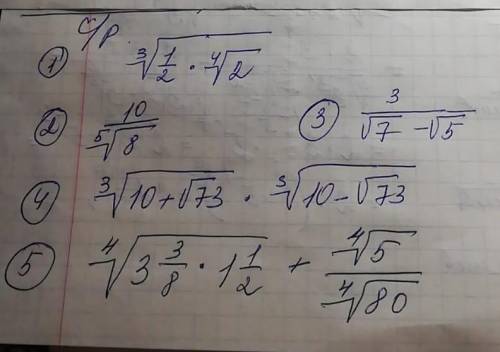 С/р.
① ∛(1/2 · ∜2)
② 10/⁵√8 ③ 3/(√7 − √5)
④ ∛(10+√73) · ∛(10−√73)
⑤ ∜(3 3/8 · 1 1/2) + ∜5/∜80